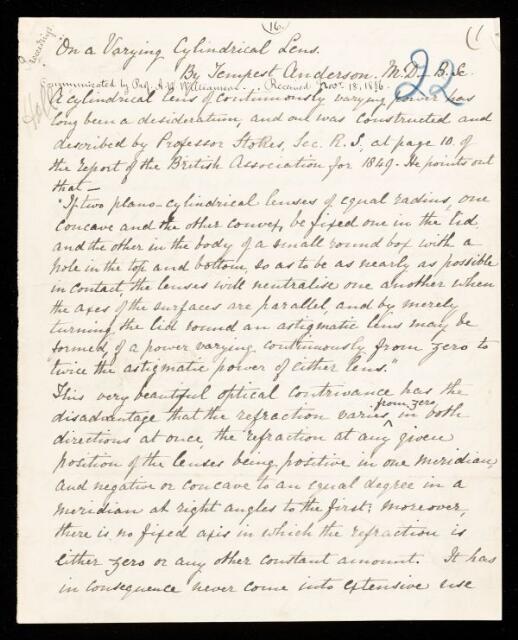 (16.
(1
Proceedings.
On a Varying Cylindrical Lens.
By Tempest Anderson. M.D. B.Sc.
22
Communicated by Prof. A.W. Williamson. Received Nov. 18, 1886.
A cylindrical lens of continuously varying power has
long been a desideratum, and one was constructed and
described by Professor Stokes, Sec. R.S. at page 10. of
the report of the British Association for 1849. He points out
that —
"If two plano-cylindrical lenses of equal radius, one
concave and the other convex, be fixed one in the lid
and the other in the body of a small round box with a
hole in the top and bottom, so as to be as nearly as possible
in contact, the lenses will neutralise one another when
the axes of the surfaces are parallel, and by merely
turning the lid round an astigmatic lens may be
formed, of a power varying continuously from zero to
"twice the astigmatic power of either lens."
This very beautiful optical contrivance has the
disadvantage that the refraction varies from zero in both
directions at once, the refraction at any given
position of the lenses being positive in one meridian,
and negative or concave to an equal degree in a
meridian at right angles to the first; moreover,
there is no fixed axis in which the refraction is
either zero or any other constant amount. It has
in consequence never come into extensive use